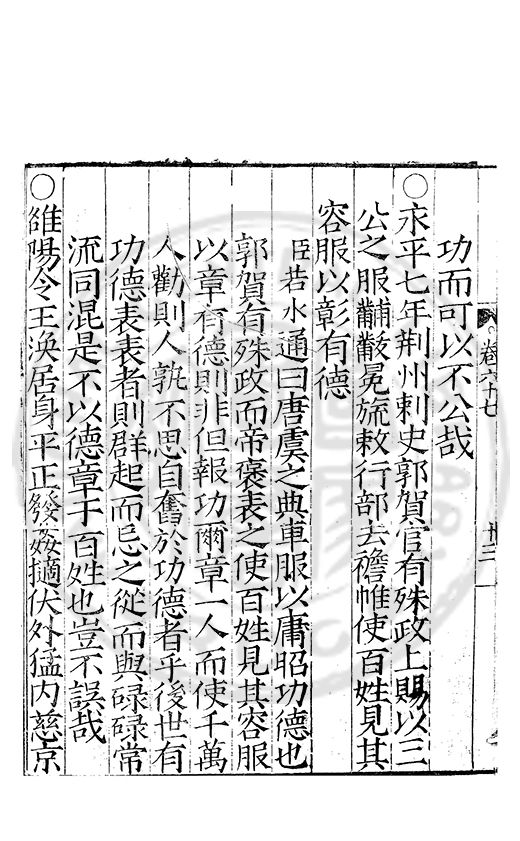 卷六十七
廿二
功而可以不公哉
○永平七年荆州刺史郭賀官有殊政上賜以三
公之服黼黻冕旒敕行部去襜帷使百姓見其
容服以彰有德
臣若水通曰唐虞之典車服以庸昭功德也
郭賀有殊政而帝褒表之使百姓見其容服
以章有德則非但報功爾章一人而使千萬
人勸則人孰不思自奮於功德者乎後世有
功德表表者則群起而忌之從而與碌碌常
流同混是不以德章于百姓也豈不誤哉
○雒陽令王渙居身平正發姦擿伏外猛内慈京